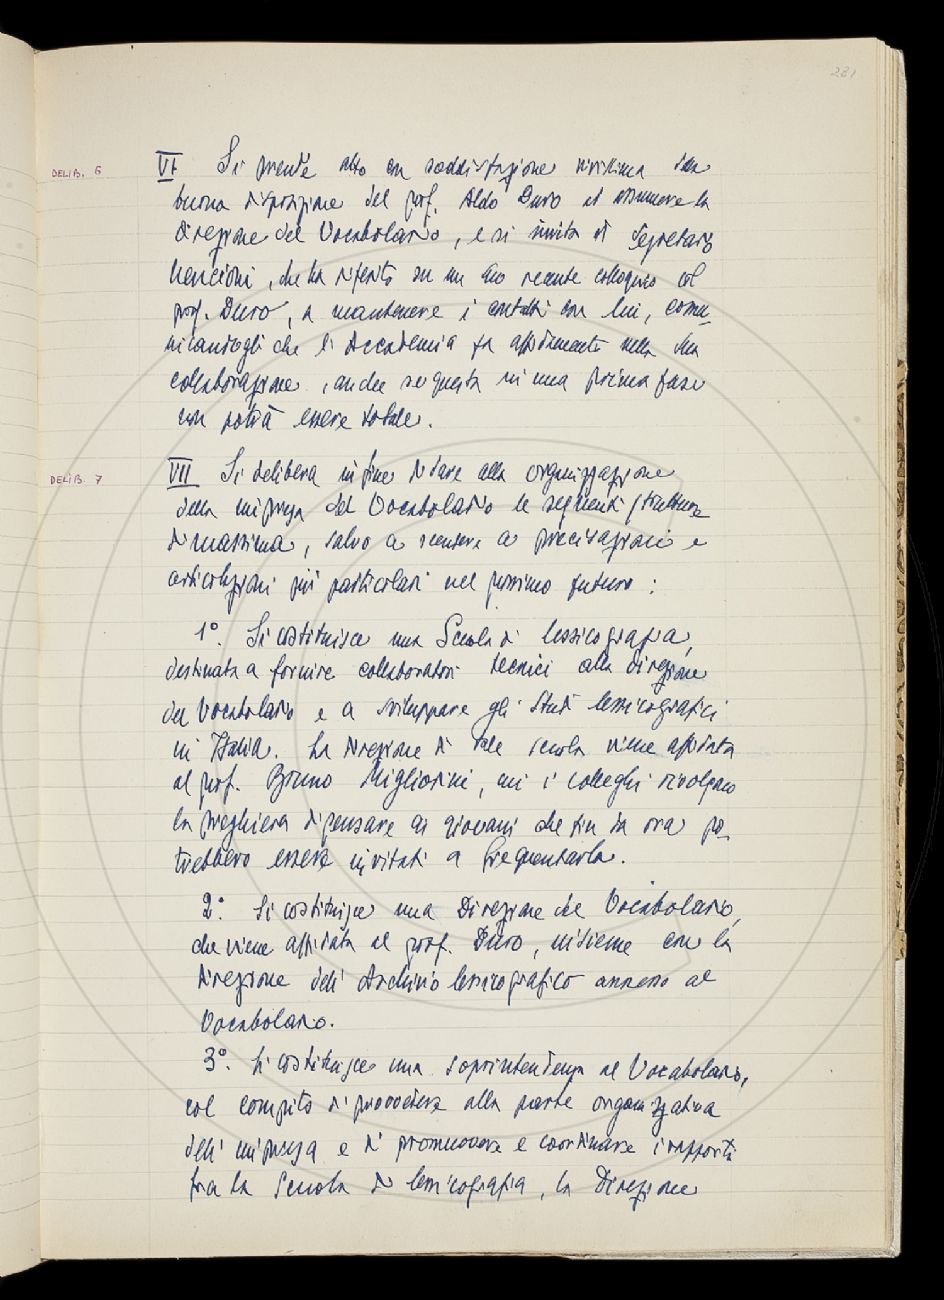 281
DELIB. 6
VI Si prende atto con soddisfazione vivissima della
buona disposizione del prof. Aldo Duro ad assumere la
direzione del Vocabolario, e si invita il Segretario
Nencioni, che ha riferito su un suo recente colloquio col
prof. Duro, a mantenere i contatti con lui, comu-
nicandogli che l'Accademia fa affidamento nella sua
collaborazione, anche se questa in una prima fase
non potrà essere totale.
DELIB. 7
VII Si delibera infine di dare alla organizzazione
della impresa del Vocabolario le seguenti strutture
di massima, salvo a scendere a precisazioni e
articolazioni più particolari nel prossimo futuro:
1°. Si costituisce una Scuola di lessicografia,
destinata a fornire collaboratori tecnici alla direzione
del Vocabolario e a sviluppare gli studi lessicografici
in Italia. La direzione di tale scuola viene affidata
al prof. Bruno Migliorini, cui i colleghi rivolgono
la preghiera di pensare ai giovani che fin da ora po-
trebbero essere invitati a frequentarla.
2°. Si costituisce una Direzione del Vocabolario,
che viene affidata al prof. Duro, insieme con la
direzione dell'Archivio lessicografico annesso al
Vocabolario.
3°. Si costituisce una soprintendenza al Vocabolario,
col compito di provvedere alla parte organizzativa
dell'impresa e di promuovere e coordinare i rapporti
fra la Scuola di lessicografia, la Direzione